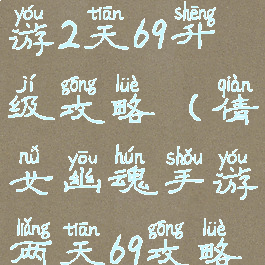 yóu tiān shēng
游2天69升
jí gōng lüè qiàn
级攻略(倩
nǚ yōu hún shǒu yóu
女幽魂手游
liǎng tiān gōng lüè
两天69攻略